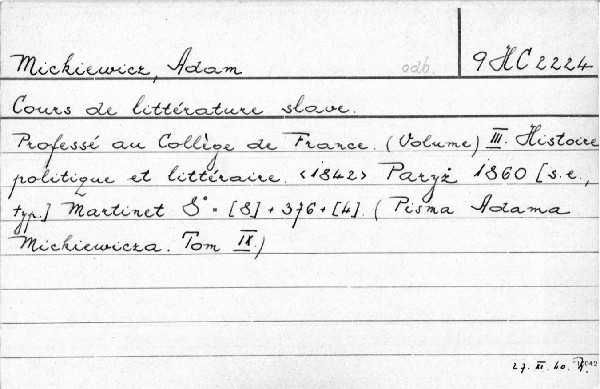 Mickiewicz, Adam odb. 9 HC 2224
Cours de littérature slave.
Professé au Collège de France. (Volume) III. Histoire
politique et littéraire. <1842> Paryż 1860 [s.e.,
typ.] Martinet 8° - [8] + 376 + [4]. (Pisma Adama
Mickiewicza. Tom IX.)
27. XI. 40.